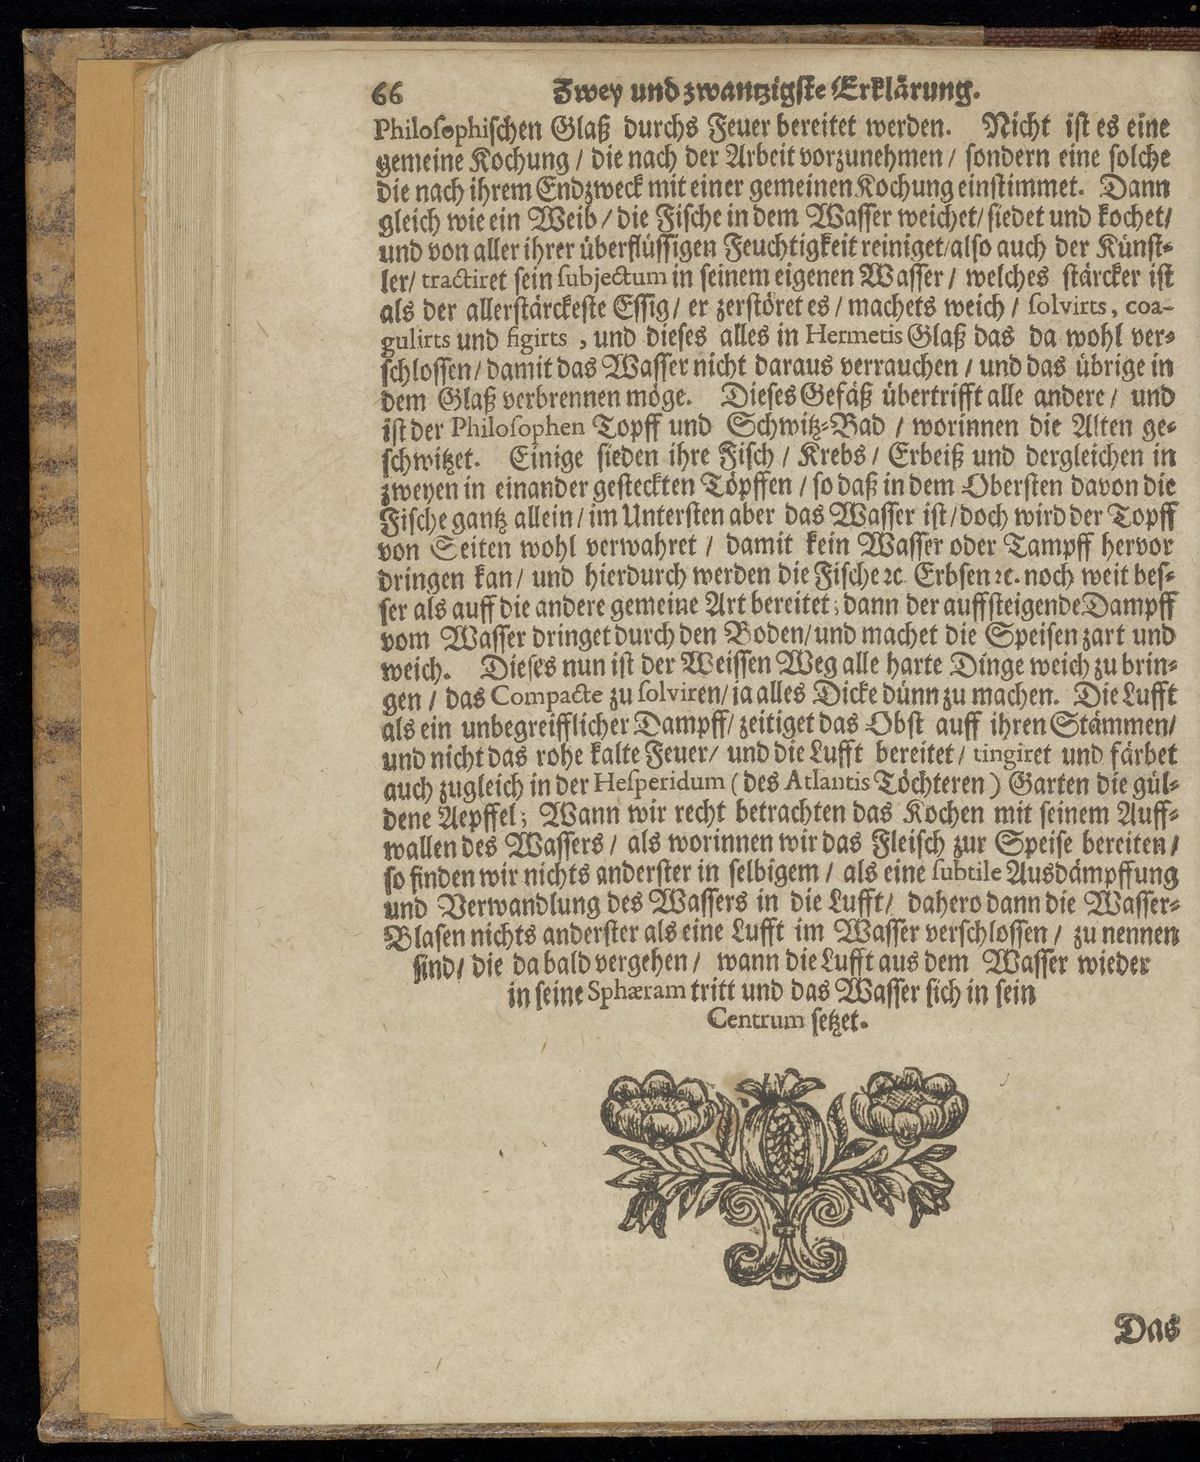 66 Zwey und zwantzigste Erklärung.
Philosophischen Glaß durchs Feuer bereitet werden. Nicht ist es eine
gemeine Kochung / die nach der Arbeit vorzunehmen / sondern eine solche
die nach ihrem Endzweck mit einer gemeinen Kochung einstimmet. Dann
gleich wie ein Weib / die Fische in dem Wasser weichet / siedet und kochet /
und von aller ihrer überflüssigen Feuchtigkeit reiniget / also auch der Künst-
ler / tractiret sein subjectum in seinem eigenen Wasser / welches stärcker ist
als der allerstärckeste Essig / er zerstöret es / machets weich / solvirts, coa-
gulirts und figirts , und dieses alles in Hermetis Glaß das da wohl ver-
schlossen / damit das Wasser nicht daraus verrauchen / und das übrige in
dem Glaß verbrennen möge. Dieses Gefäß übertrifft alle andere / und
ist der Philosophen Topff und Schwitz-Bad / worinnen die Alten ge-
schwitzet. Einige sieden ihre Fisch / Krebs / Erbeiß und dergleichen in
zweyen in einander gesteckten Töpffen / so daß in dem Obersten davon die
Fische gantz allein / im Untersten aber das Wasser ist / doch wird der Topff
von Seiten wohl verwahret / damit kein Wasser oder Tampff hervor
dringen kan / und hierdurch werden die Fische ꝛc. Erbsen ꝛc. noch weit bes-
ser als auff die andere gemeine Art bereitet; dann der auffsteigende Dampff
vom Wasser dringet durch den Boden / und machet die Speisen zart und
weich. Dieses nun ist der Weissen Weg alle harte Dinge weich zu brin-
gen / das Compacte zu solviren / ja alles Dicke dünn zu machen. Die Lufft
als ein unbegreifflicher Dampff / zeitiget das Obst auff ihren Stämmen /
und nicht das rohe kalte Feuer / und die Lufft bereitet / tingiret und färbet
auch zugleich in der Hesperidum ( des Atlantis Töchteren ) Garten die gül-
dene Aepffel; Wann wir recht betrachten das Kochen mit seinem Auff-
wallen des Wassers / als worinnen wir das Fleisch zur Speise bereiten /
so finden wir nichts anderster in selbigem / als eine subtile Ausdämpffung
und Verwandlung des Wassers in die Lufft / dahero dann die Wasser-
Blasen nichts anderster als eine Lufft im Wasser verschlossen / zu nennen
sind / die da bald vergehen / wann die Lufft aus dem Wasser wieder
in seine Sphæram tritt und das Wasser sich in sein
Centrum setzet.
Das